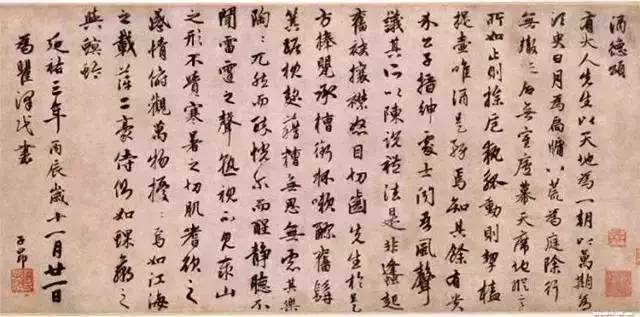 酒德頌
有大人先生以天地為一朝以萬期為
須臾日月為扃牖八荒為庭除行
無轍跡居無室廬幕天席地縱意
所如止則操卮執觚動則挈榼
提壺唯酒是務焉知其餘有貴
介公子搢紳處士聞吾風聲
議其所以陳說禮法是非蠭起
奮袂攘襟怒目切齒先生於是
方捧甖承槽銜杯漱醪奮髯
箕踞枕麴藉糟無思無慮其樂
陶々兀然而醉恍爾而醒靜聽不
聞雷霆之聲孰視不見泰山
之形不覺寒暑之切肌嗜欲之
感情俯觀萬物擾々焉如江海
之載萍二豪侍側如蜾蠃之
與螟蛉
延祐三年丙辰歲十一月廿一日
為瞿澤民書
子昂